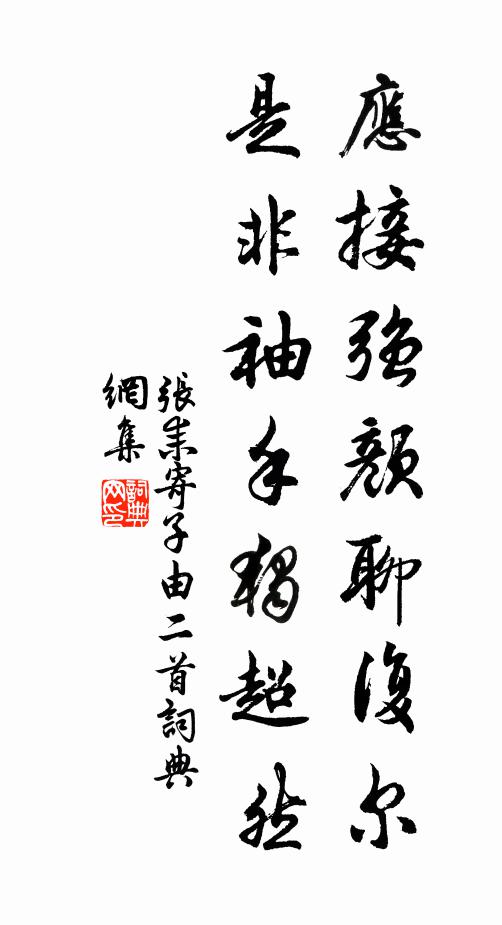 應接強顏聊復尔
是非袖手獨超然
張耒寄子由二首詞典
網集
詞典
网印